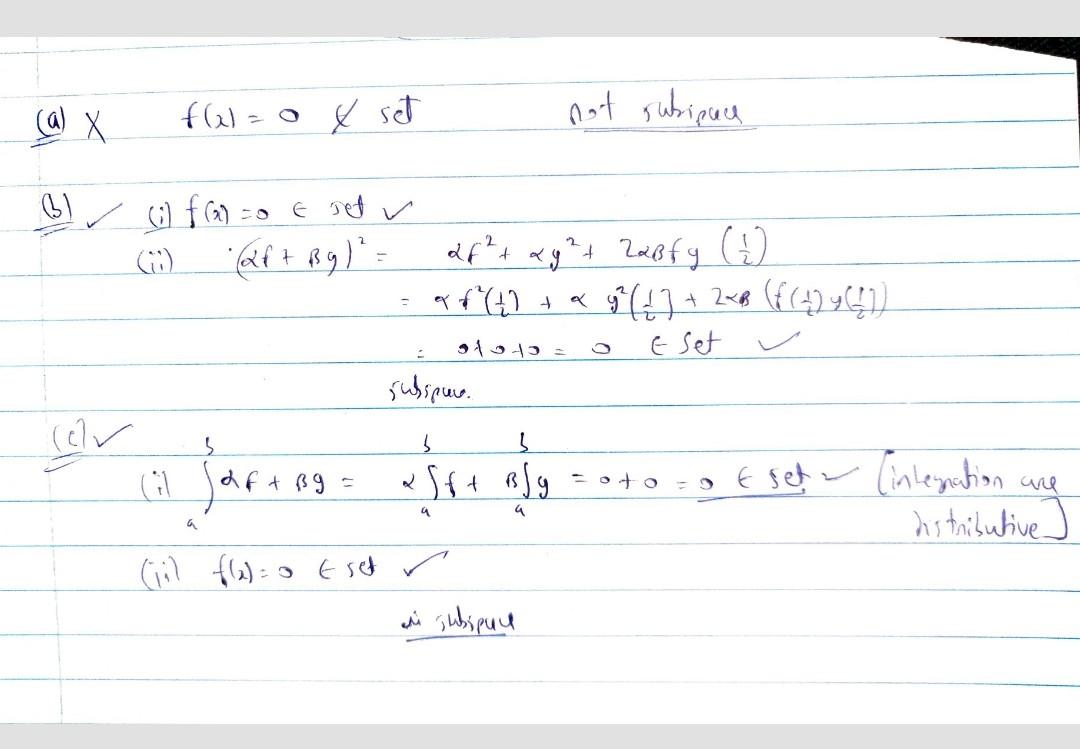 (a) X f(x) = 0 ∉ set not subspace
(b) ✓ (i) f(x) = 0 ∈ set ✓
(ii) (αf + βg)² = αf² + αg² + 2αβfg (1/2)
= αf²(1/2) + α g²(1/2) + 2αβ (f(1/2) g(1/2))
= 0+0+0 = 0 ∈ set ✓
subspace.
(c) ✓
(i) ∫ₐᵇ αf + βg = α ∫ₐᵇ f + β ∫ₐᵇ g = 0 + 0 = 0 ∈ set ✓ (integration are
distributive]
(ii) f(x) = 0 ∈ set ✓
subspace